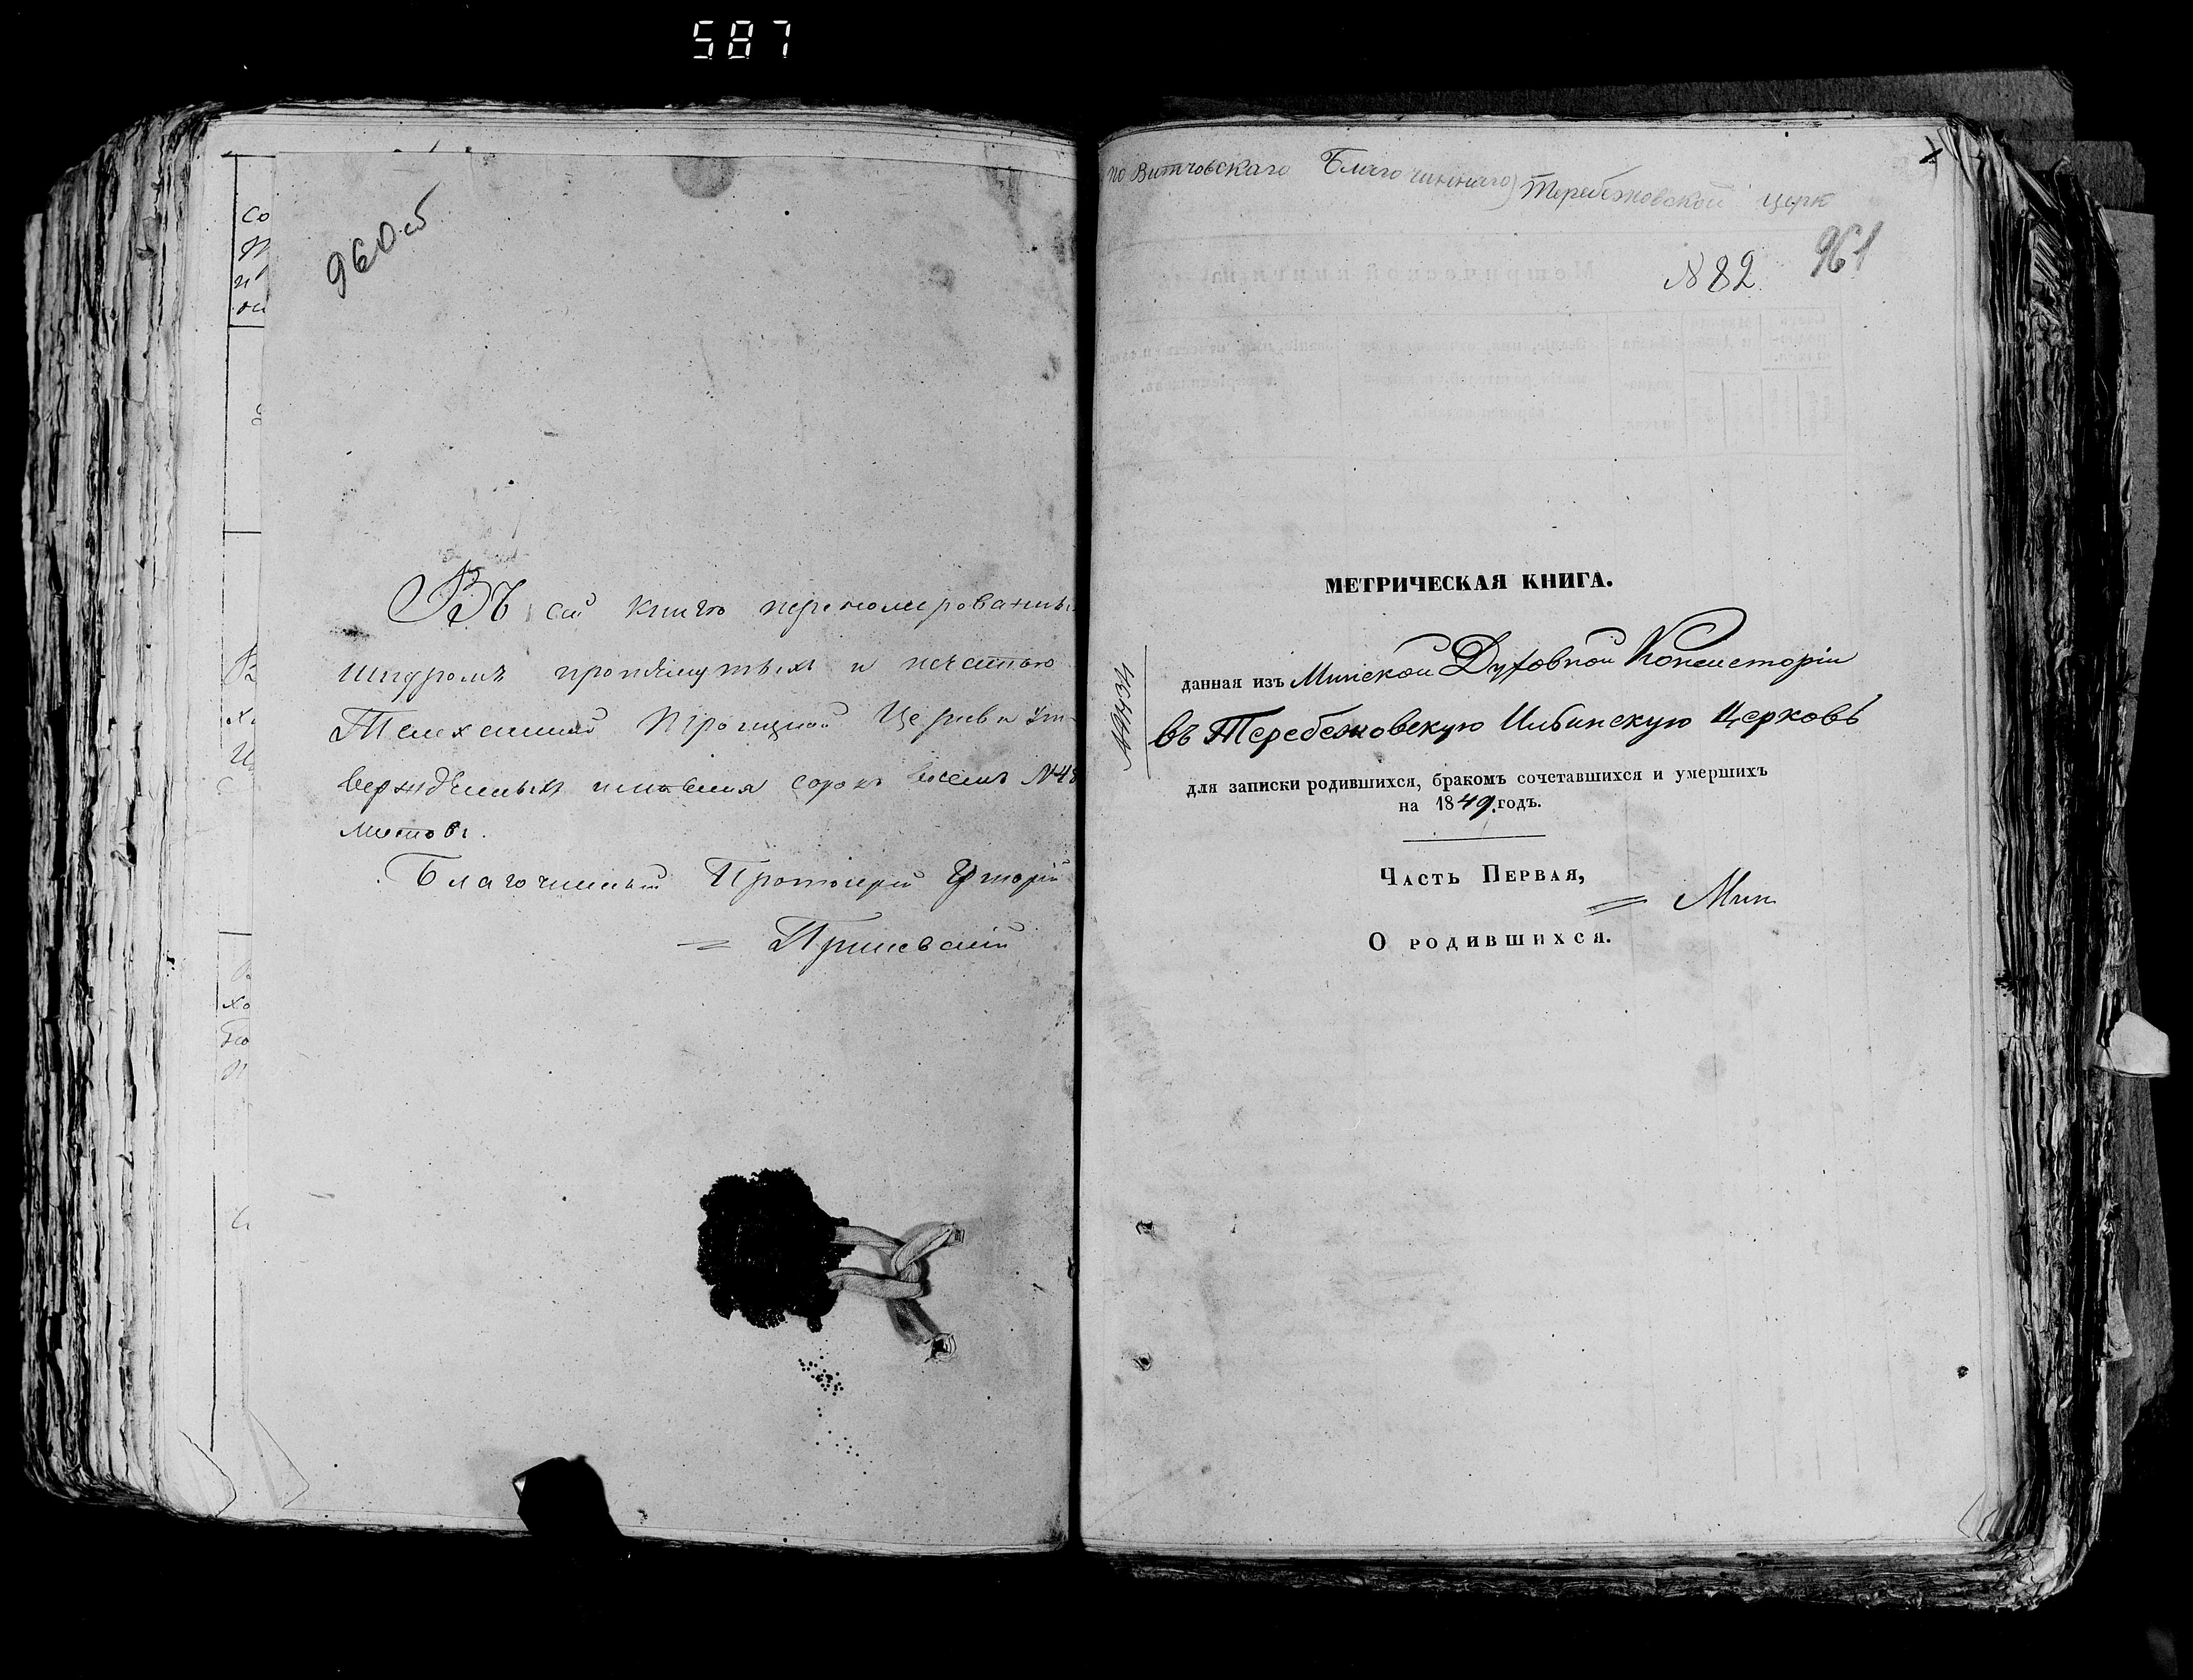 587
960 об
Въ сей книгѣ перенумерованныхъ
шнуромъ протянутыхъ и печатью
Телеханской Троицкой Церкви ут-
вержденныхъ сорокъ восемь №48
листовъ.
Благочинный Протоіерей Григорій
=
по Витчовскаго Благочиннаго) Теребежовской церк
№ 82 961
МЕТРИЧЕСКАЯ КНИГА.
данная изъ Минской Духовной Консисторіи
въ Теребежовскую Ильинскую Церковь
для записки родившихся, бракомъ сочетавшихся и умершихъ
на 1849 годъ.
Часть Первая,
= Мин
О родившихся.